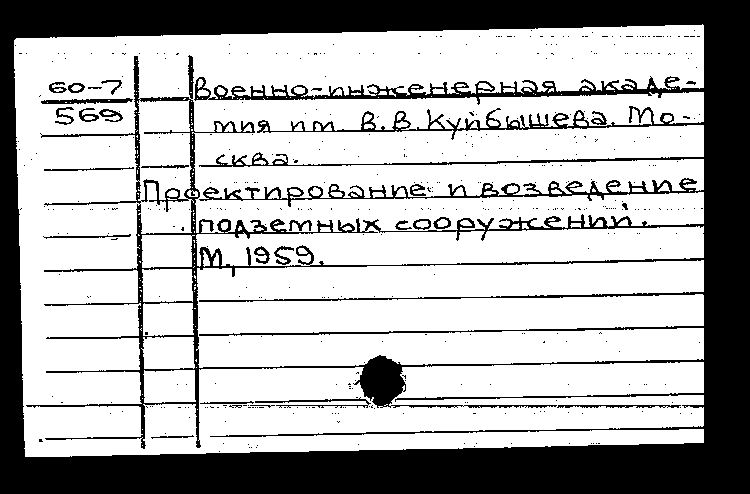 60-7
569
Военно-инженерная акаде-
мия им. В.В.Куйбышева. Мо-
сква.
Проектирование и возведение
подземных сооружений.
М., 1959.